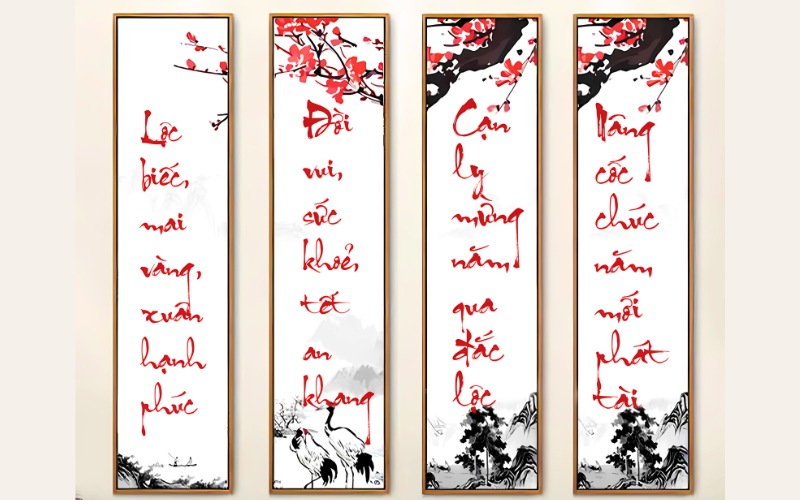 Lộc
biếc,
mai
vàng,
xuân
hạnh
phúc
Đời
vui,
sức
khoẻ,
tết
an
khang
Cạn
ly
mừng
năm
qua
đắc
lộc
Nâng
cốc
chúc
năm
mới
phát
tài